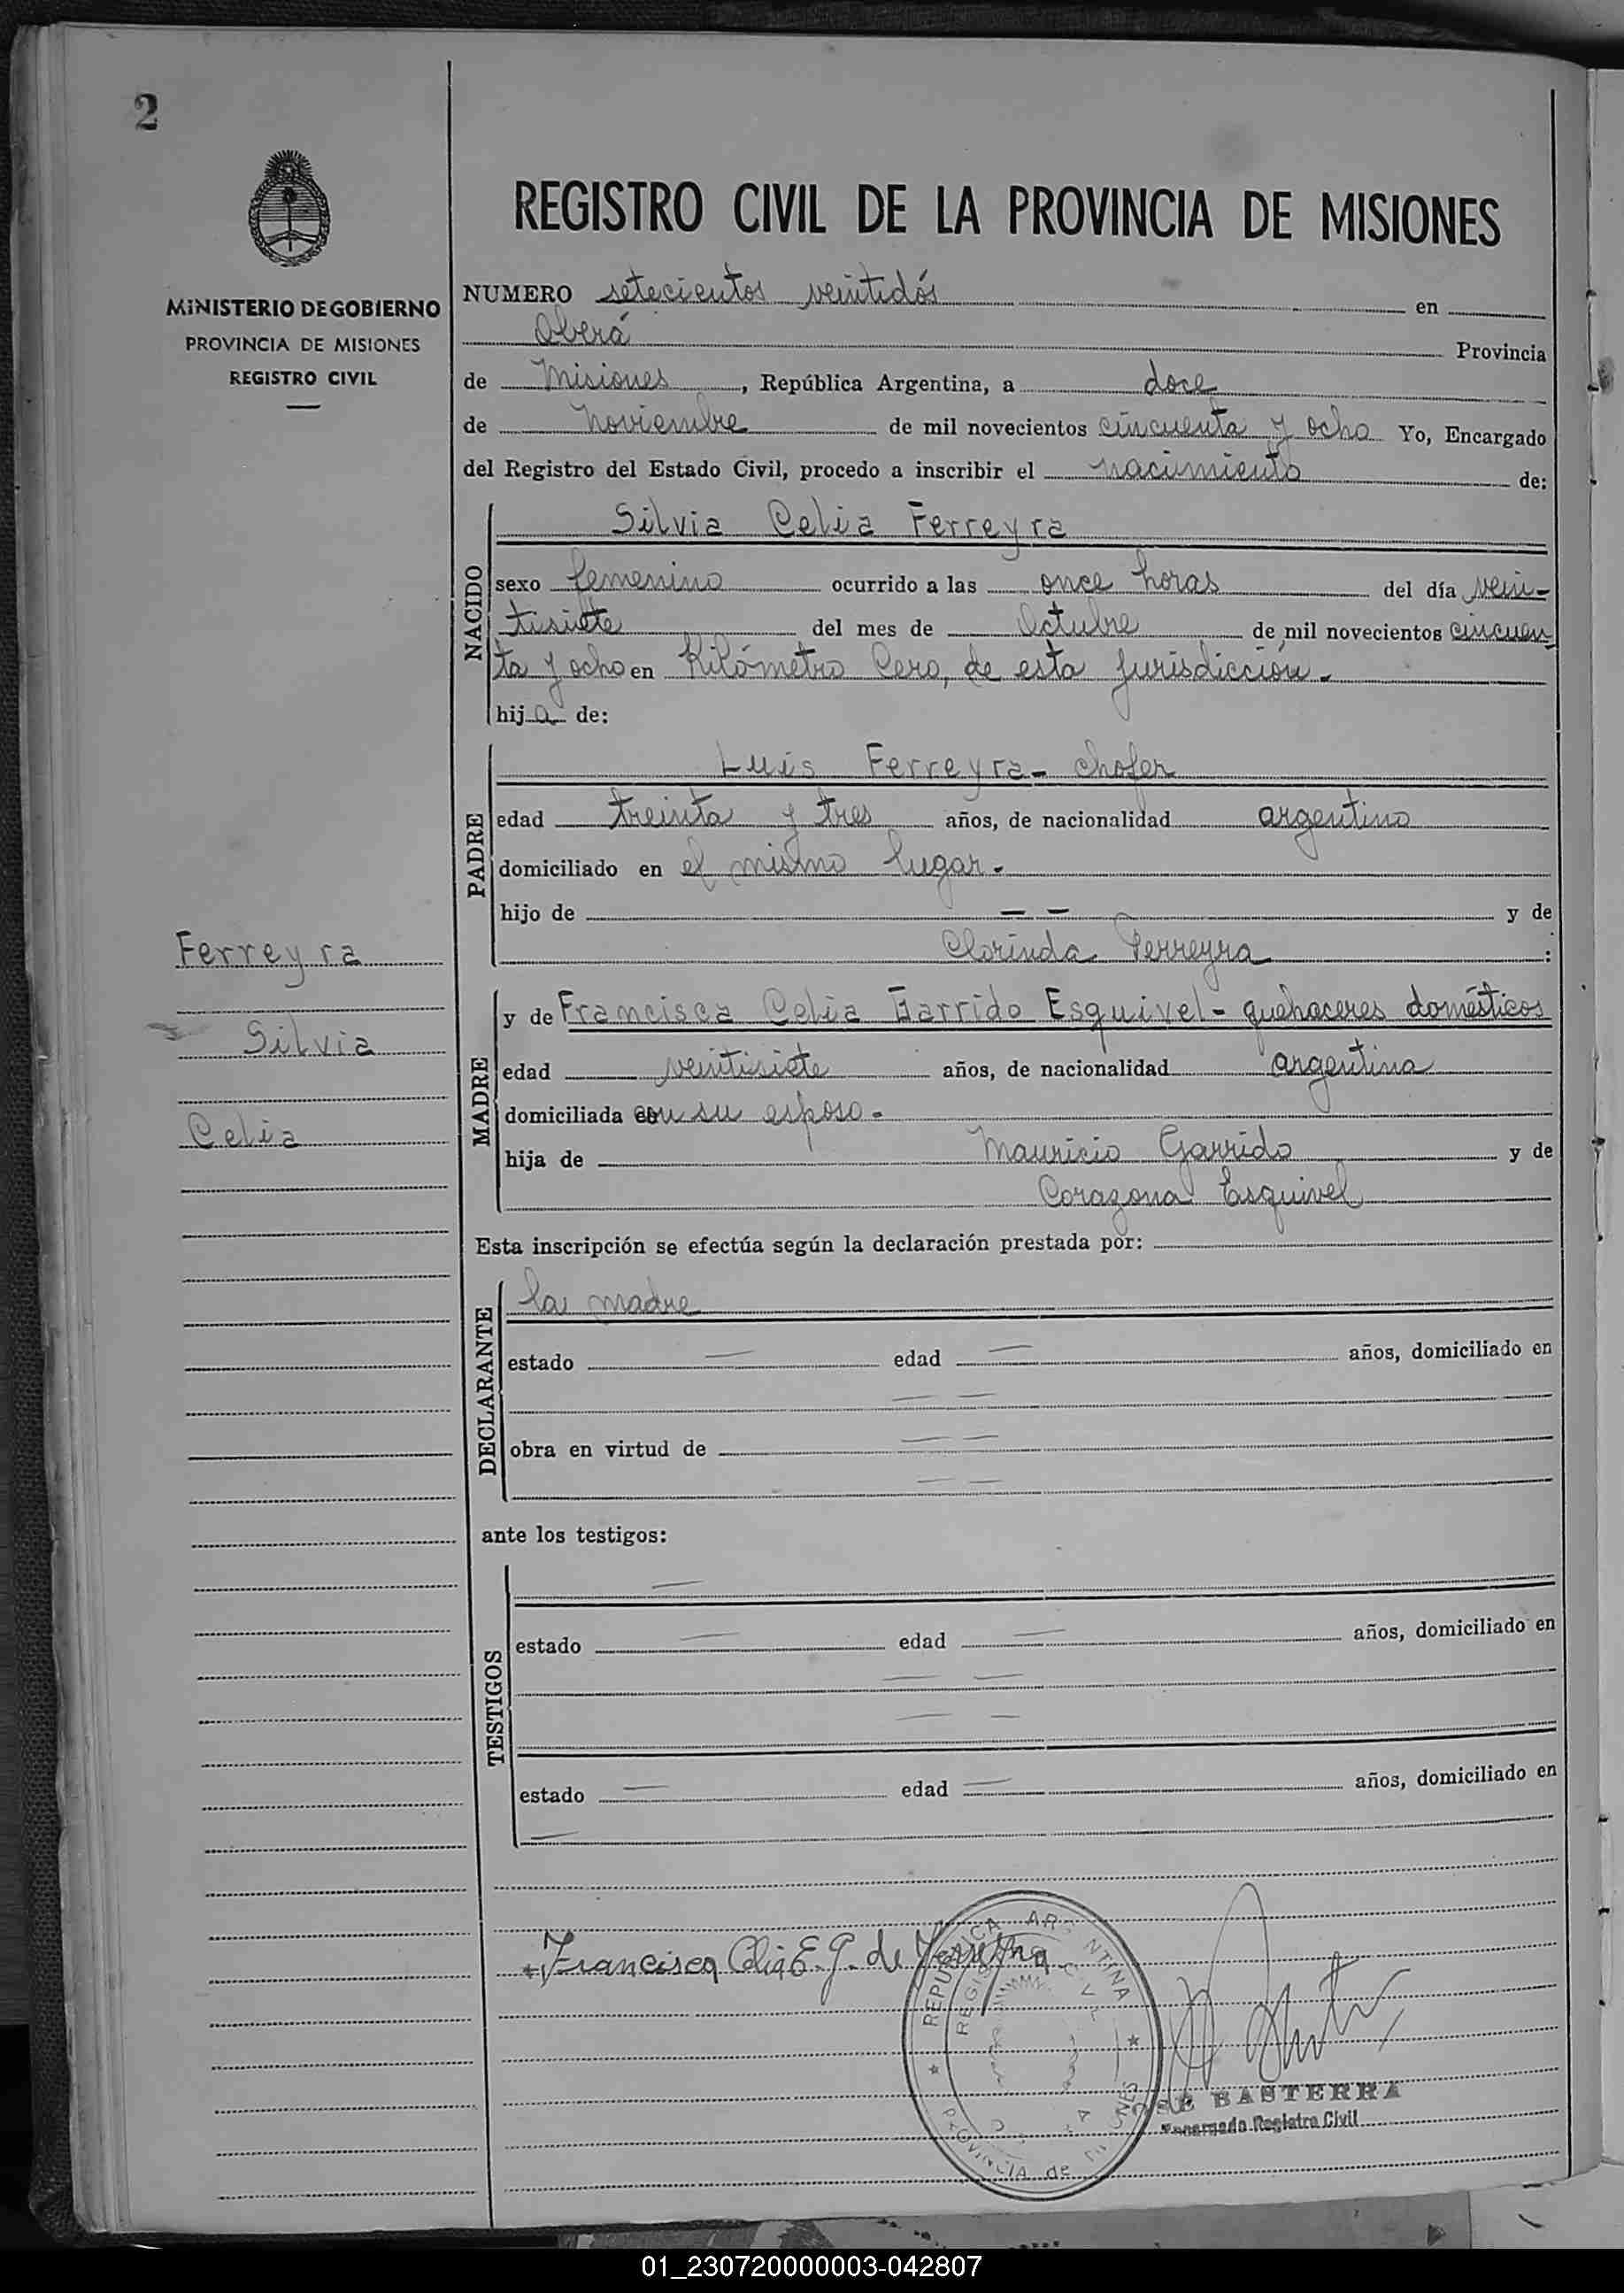 2
MINISTERIO DE GOBIERNO
PROVINCIA DE MISIONES
REGISTRO CIVIL
REGISTRO CIVIL DE LA PROVINCIA DE MISIONES
NUMERO setecientos veintidós en
Oberá Provincia
de Misiones, República Argentina, a doce
de Noviembre de mil novecientos cincuenta y ocho Yo, Encargado
del Registro del Estado Civil, procedo a inscribir el nacimiento de:
NACIDO
Silvia Celia Ferreyra
sexo femenino ocurrido a las once horas del día vein-
tisiete del mes de Octubre de mil novecientos cincuen
ta y ocho en Kilómetro Cero, de esta jurisdicción.
hija de:
PADRE
Luis Ferreyra - chofer
edad treinta y tres años, de nacionalidad argentino
domiciliado en el mismo lugar.
hijo de — — y de
Clorinda Ferreyra :
Ferreyra
Silvia
Celia
MADRE
y de Francisca Celia Garrido Esquivel - quehaceres domésticos
edad veintisiete años, de nacionalidad argentina
domiciliada con su esposo.
hija de Mauricio Garrido y de
Corazona Esquivel
Esta inscripción se efectúa según la declaración prestada por:
DECLARANTE
la madre
estado — edad — años, domiciliado en
— —
obra en virtud de — —
— —
ante los testigos:
TESTIGOS
—
estado — edad — años, domiciliado en
— —
— —
estado — edad — años, domiciliado en
—
Francisca Celia E. G. de Ferreyra
REPUBLICA ARGENTINA
REGISTRO CIVIL
PROVINCIA de MISIONES
BASTERRA
Encargado Registro Civil
01_230720000003-042807